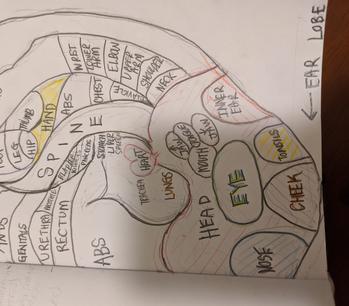 EAR LOBE
WRIST
LOWER
ARM
ELBOW
UPPER
ARM
SHOULDER
NECK
CLAVICLE
CHEST
ABS
HAND
THUMB
HIP
LEG
SPINE
INNER
EAR
TONSILS
CHEEK
EYE
NOSE
HEAD
MOUTH
LUNGS
TRACHEA
HEART
STOMACH
LIVER
SPLEEN
BLADDER
ABS
RECTUM
URETHRA
GENITALS